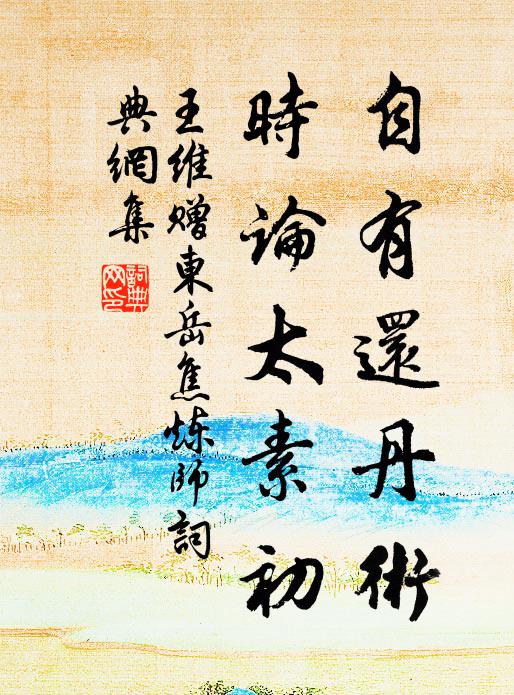 自有還丹術
時論太素初
王維贈東岳焦炼師詞
典網集
詞典
网印